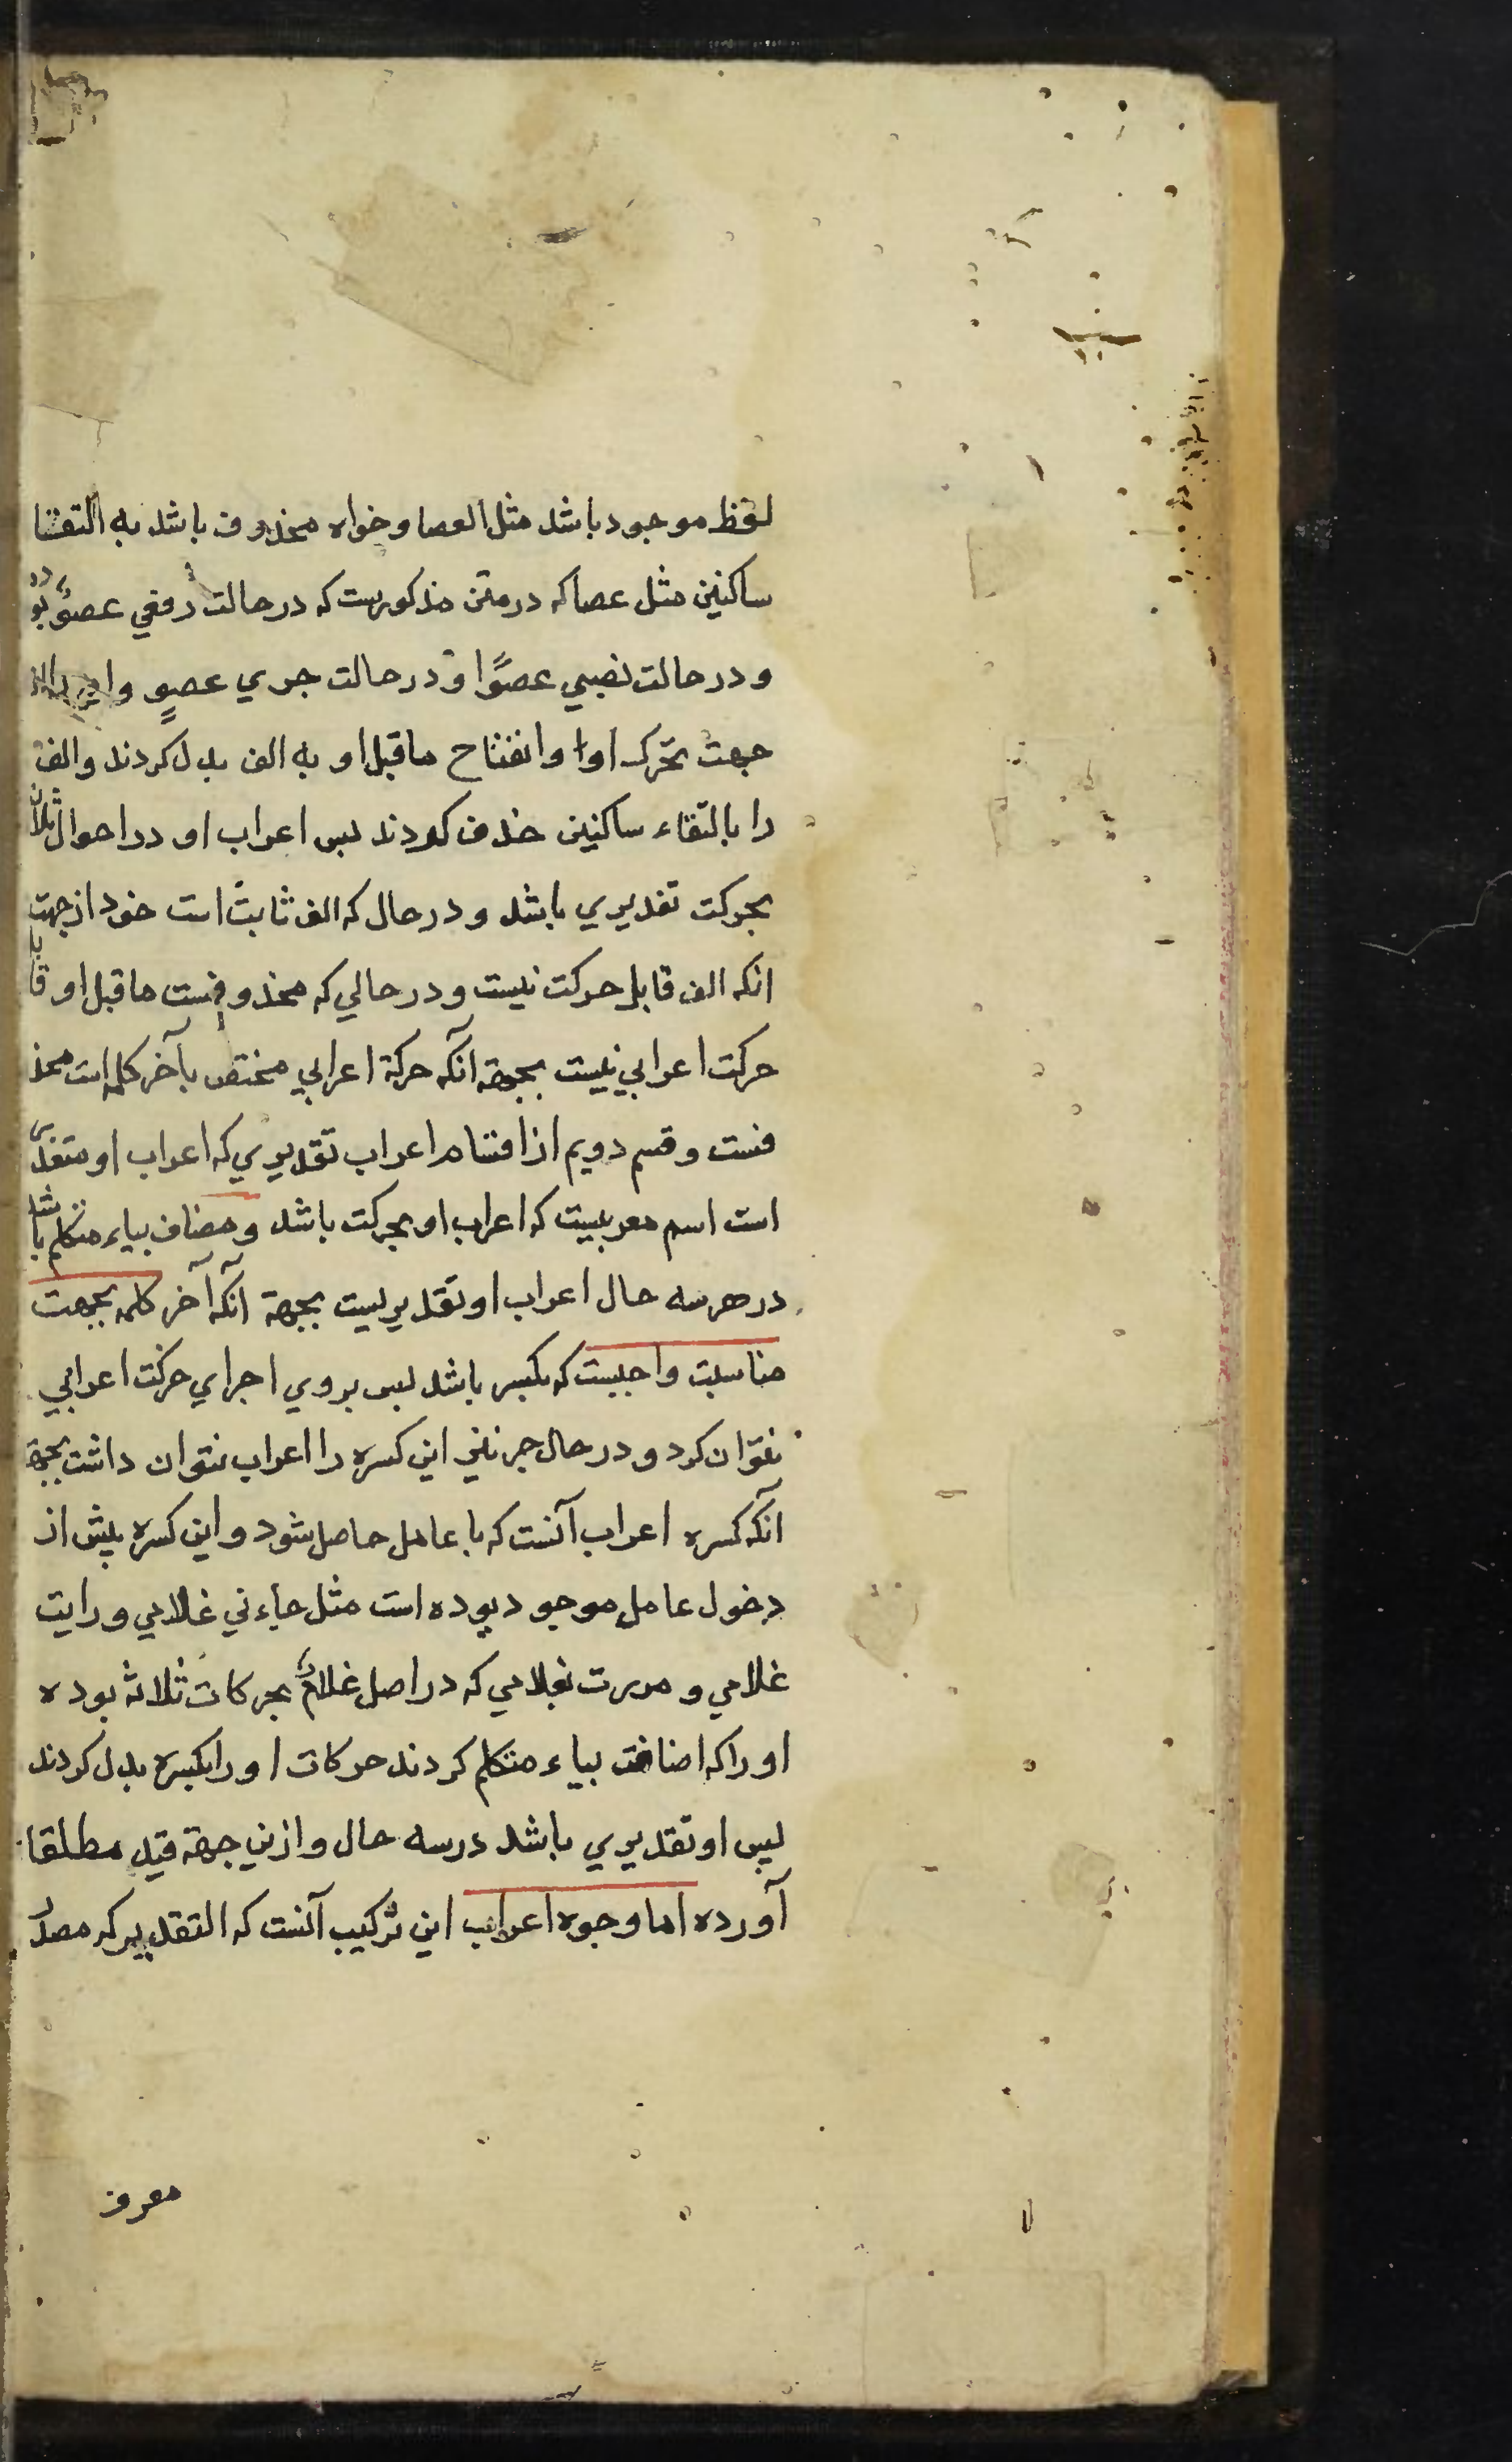 لفظ موجود باشد مثل العصا و خواه محذوف باشد به التقتا
ساکنین مثل عصا که در متن مذکورست که در حالت رفعي عصوٌ بود
و در حالت نصبي عصوًا و در حالت جري عصوٍ و
جهت تحّرک اوا و انفتاح ماقبل او به الف بدل کردند و الف
را بالتقاء ساکنین حذف کردند پس اعراب او در احوال ثلاث
بحرکت تقدیري باشد و در حال که الف ثابت است خود از جهت
انکه الف قابل حرکت نیست و در حالي که محذوفست ماقبل او قابل
حرکت اعرابي نیست بجهة آنکه حرکة اعرابي مختص بآخر کلمه است محذ
فست و قسم دویم از اقسام اعراب تقدیري که اعراب او متعذر
است اسم معربیست که اعراب او بحرکت باشد و مضاف بیاء متکلم باشد
در هر سه حال اعراب او تقدیریست بجهة آنکه آخر کلمه بجهت
مناسبت واجبست که بکسر باشد پس بروي اجراي حرکت اعرابي
نتوان کرد و در حال جر نیز این کسره را اعراب نتوان داشت بجهة
آنکه کسره اعراب آنست که با عامل حاصل شود و این کسره پیش از
دخول عامل موجود بوده است مثل جاءني غلامي و رایت
غلامي و مررت بغلامي که در اصل غلامٌ بحرکات ثلاثه بوده
او را که اضافت بیاء متکلم کردند حرکات او را بکسره بدل کردند
پس او تقدیري باشد در سه حال و ازین جهة قید مطلقا
آورده اما وجوه اعراب این ترکیب آنست که التقدیر که مصدر
معرف